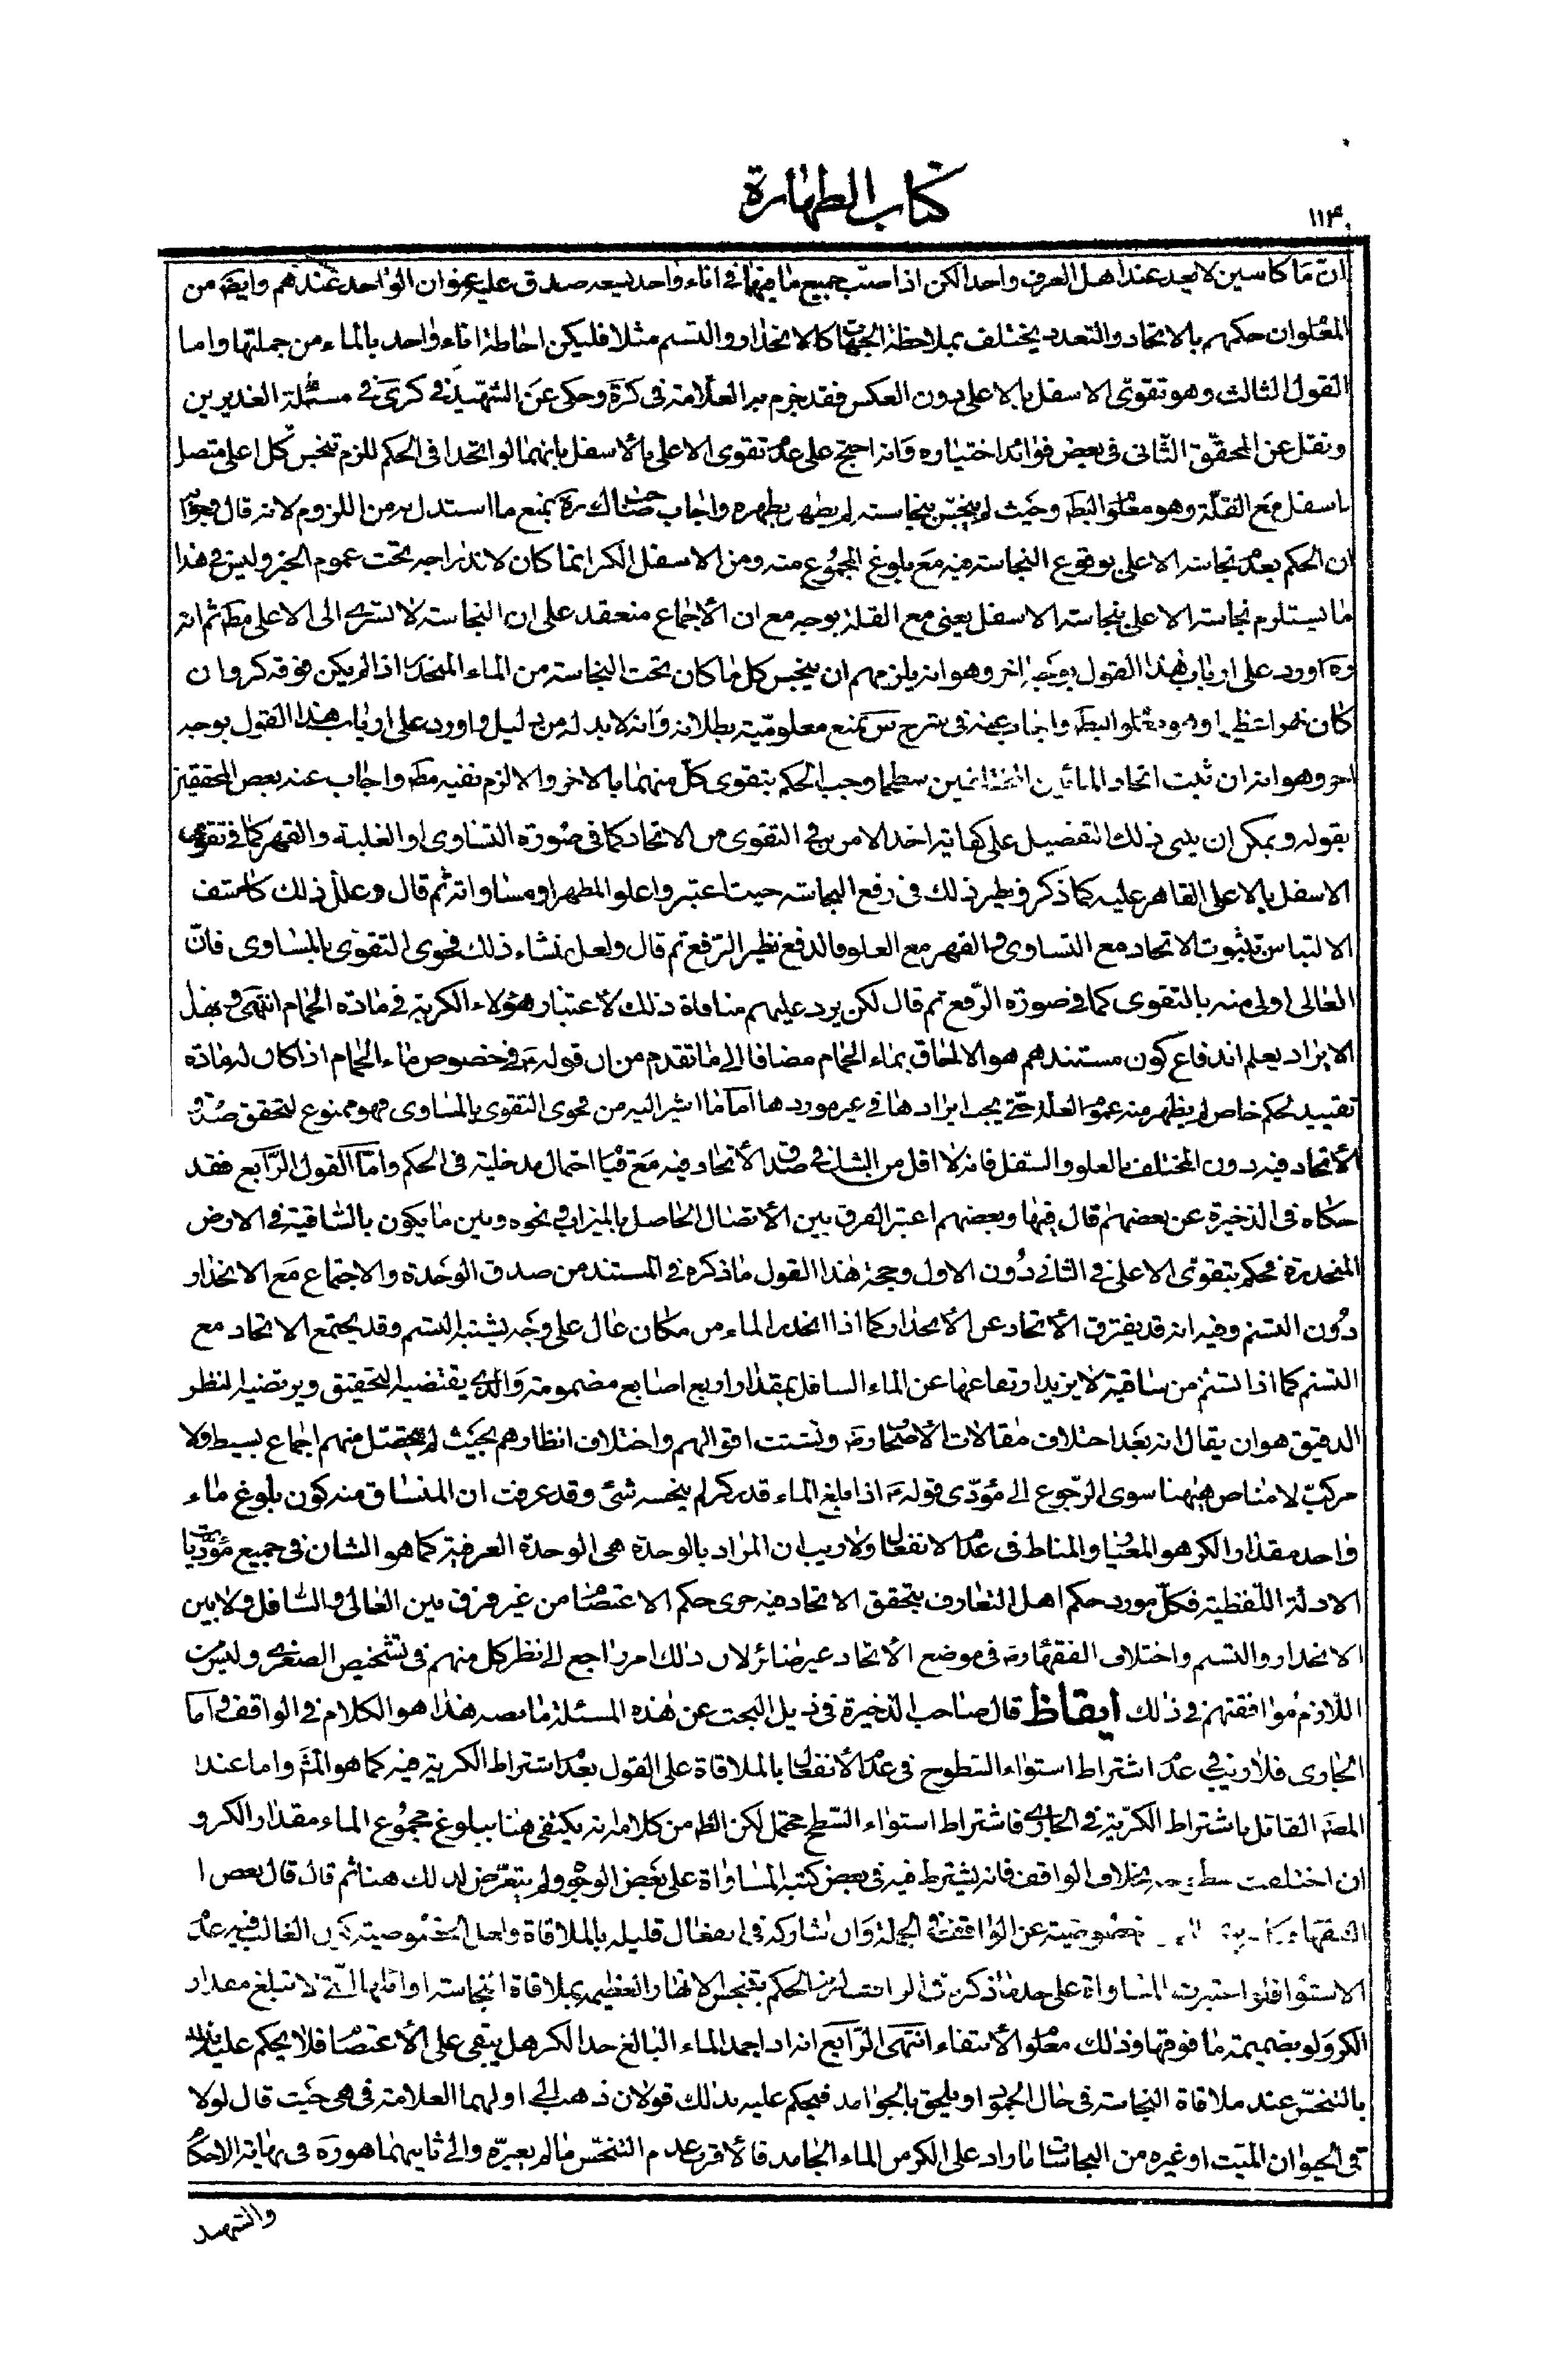 كتاب الطهارة
١١٣
ان ما كاسين لا يعد عند اهل العرف واحدا لكن اذا صبّ جميع ما فيهما في اناء واحد يسعه صدق عليه عنوان الواحد عندهم وايضا من
المعلوان حكمهم بالاتحاد والتعدد يختلف بملاحظة الجهات كالانحدار والتسنم مثلا فليكن احاطة اناء واحد بالماء من جملتها واما
القول الثالث وهو تقوّى الاسفل بالاعلى دون العكس فقد جزم به العلامة في كرة وحكى عن الشهيد في كرى في مسئلة الغديرين
ونقل عن المحقّق الثّانى في بعض فوائد اختياره وانه احتج على عدم تقوى الاعلى بالأسفل بانهما لو اتحدا في الحكم للزم تنجس كل اعلى متصل
باسفل مع القلّة وهو معلو البط وحيث لم ينجس بنجاسته لم يطهر بطهره واجاب صاحب لك ره بمنع ما استدل به من اللزوم لانه قال وجوابه
ان الحكم بعدم نجاسة الاعلى بوقوع النجاسة فيه مع بلوغ المجموع منه ومن الاسفل الكر انما كان لاندراجه تحت عموم الخبر وليس في هذا
ما يستلزم نجاسة الاعلى بنجاسة الاسفل يعنى مع القلة بوجه مع ان الأجماع منعقد على ان النجاسة لا تسرى الى الاعلى مط ثم انه
ره اورد على ارباب هذا القول بوجه اخر وهو انه يلزمهم ان ينجس كل ما كان تحت النجاسة من الماء المنحدر اذا لم يكن فوقه كر وان
كان نهرا عظيما وهو معلو البط واجاب عنه في شرح س بمنع معلوميّة بطلانه وانه لا بد له من دليل واورد على ارباب هذا القول بوجه
اخر وهو انه ان ثبت اتحاد المائين المختلفين سطحا وجب الحكم بتقوى كلّ منهما بالاخر والا لزم نفيه مط واجاب عنه بعض المحققين
بقوله ويمكن ان يبنى ذلك التفصيل على كفاية احد الامرين في التقوى من الاتحاد كما في صورة التساوى او الغلبة والقهر كما في تقوى
الاسفل بالاعلى القاهر عليه كما ذكر ونظير ذلك في رفع النجاسة حيث اعتبروا علو المطهر او مساواته ثم قال وعلل ذلك كاشف
الالتباس بثبوت الاتحاد مع التساوى والقهر مع العلو فالدفع نظير الرفع ثم قال ولعل منشاء ذلك فحوى التقوى بالمساوى فانّ
العالى اولى منه بالتقوى كما في صورة الرّفع ثم قال لكن يرد عليهم منافاة ذلك لأعتبار هؤلاء الكرية في مادة الحمام انتهى وبهذا
الايراد يعلم اندفاع كون مستندهم هو الالحاق بماء الحمام مضافا الى ما تقدم من ان قوله ع في خصوص ماء الحمام اذا كان له مادة
تقييد لحكم خاص لم يظهر منه عموم العلة حتى يجب ايرادها في غير موردها امّا ما اشير اليه من فحوى التقوى بالمساوى فهو ممنوع لتحقق صدق
الأتحاد فيه دون المختلف بالعلو والسفل فانه لا اقل من الشك في صدق الأتحاد فيه مع قيا احتمال مدخليته في الحكم وامّا القول الرّابع فقد
حكاه في الذخيرة عن بعضهم قال فيها وبعضهم اعتبر الفرق بين الأتصال الحاصل بالميزاب ونحوه وبين ما يكون بالساقية في الارض
المنحدرة فحكم بتقوّى الاعلى في الثانى دون الاول وحجة هذا القول ما ذكره في المستند من صدق الوحدة والاجتماع مع الانحدار
دون التسنم وفيه انه قد يفترق الأتحاد عن الأنحدار كما اذا انحدر الماء من مكان عال على وجه يشبه التسنم وقد يجتمع الاتحاد مع
التسنم كما اذا تسنم من ساقية لا يزيد ارتفاعها عن الماء السافل بمقدار اربع اصابع مضمومة والّذى يقتضيه التحقيق ويرتضيه النظر
الدقيق هو ان يقال انه بعد اختلاف مقالات الأصحاب ره وتشتت اقوالهم واختلاف انظارهم بحيث لم يحصل منهم اجماع بسيط ولا
مركبّ لا مناص هيهنا سوى الرّجوع الى مؤدّى قوله ع اذا بلغ الماء قدر كر لم ينجسه شئ وقد عرفت ان المنساق منه كون بلوغ ماء
واحد مقدار الكر هو المعيار والمناط في عدم الانفعال ولا ريب ان المراد بالوحدة هى الوحدة العرفية كما هو الشان في جميع مؤدّيات
الادلة اللّفظية فكلّ مورد حكم اهل التعارف بتحقق الاتحاد فيه جرى حكم الاعتصام من غير فرق بين العالى والسافل ولا بين
الانحدار والتسنم واختلاف الفقهاء ره في موضع الأتحاد غير ضائر لان ذلك امر راجع الى نظر كل منهم في تشخيص الصغرى وليس من
اللّازم موافقتهم في ذلك ايقاظ قال صاحب الذخيرة في ذيل البحث عن هذه المسئلة ما نصه هذا هو الكلام في الواقف وامّا
الجارى فلا ريب في عدم اشتراط استواء السّطوح في عدم الأنفعال بالملاقاة على القول بعدم اشتراط الكرية فيه كما هو المش واما عند
المصّ القائل باشتراط الكريّة في الجارى فاشتراط استواء السّطح محتمل لكن الظ من كلامه انه يكتفى هنا ببلوغ مجموع الماء مقدار الكر و
ان اختلفت سطوحه بخلاف الواقف فانه يشترط فيه في بعض كتبه المساواة على بعض الوجوه ولم يتعرّض لذلك هنا ثم قال قال بعض ا
الفقهاء خصوصية عن الواقف في الجملة وان شاركه في انفعال قليله بالملاقاة ولعل الخصوصية كون الغالب فيه عدم
الاستواء فلو اعتبرت المساواة على حد ما ذكره الحكم بتنجس الانهار العظيمة بملاقاة النجاسة اوائلها الّتى لا تبلغ مقدار
الكر ولو بضميمة ما فوقها وذلك معلو الأنتفاء انتهى الرّابع انه اذا جمد الماء البالغ حد الكر هل يبقى على الأعتصام فلا يحكم عليه
بالتنجّس عند ملاقاة النجاسة في حال الجمود او يلحق بالجوامد فيحكم عليه بذلك قولان ذهب الى اولهما العلامة في هى حيث قال لو لا
قى الحيوان الميّت او غيره من النجاسات ما زاد على الكر من الماء الجامد فالأقرب عدم التنجّس ما لم يغيرّه والى ثانيهما هو ره في نهاية الاحكام
والشهيد